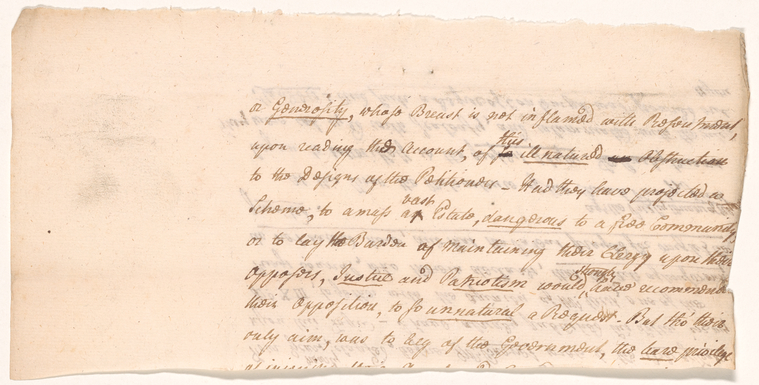 or Generosity, whose Breast is not inflamed with Resentment,
upon reading the Account, of this ill natured Obstruction
to the Designs of the Petitioners – Had they have projected a
Scheme, to amass a vast Estate, dangerous to a free Community
or to lay the Burden of maintaining their Clergy upon their
Opposers, Justice and Patriotism would strongly have recommended
their Opposition, to so unnatural a Request. But tho' their
only aim, was to beg of the Government, the bare privilege
of injoying